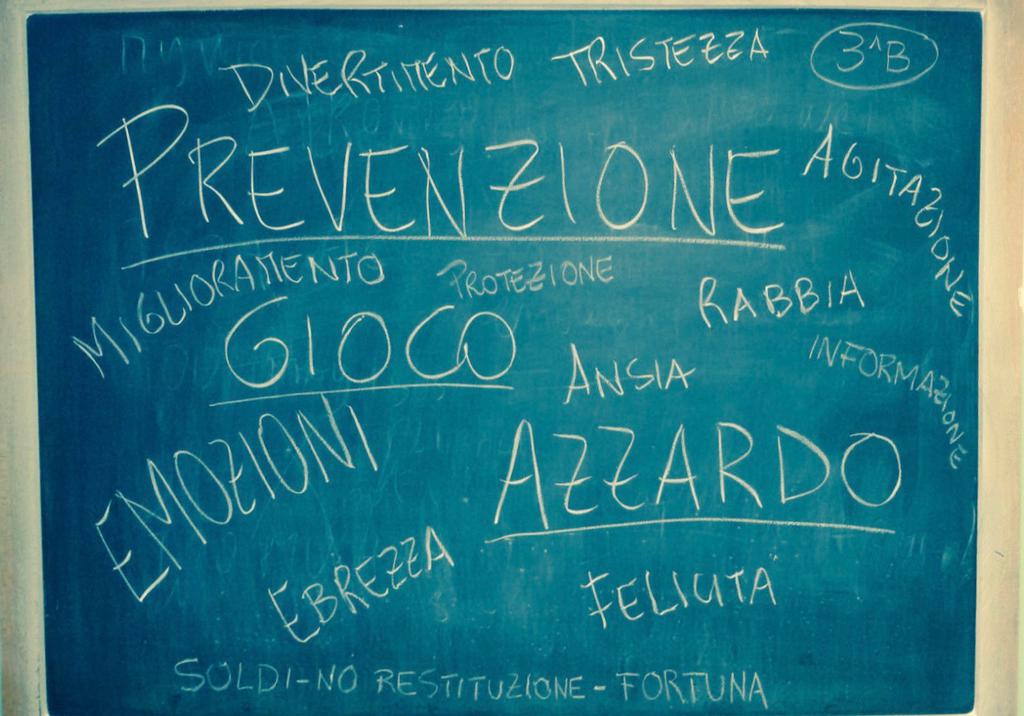 DIVERTIMENTO TRISTEZZA 3^B
PREVENZIONE
AGITAZIONE
MIGLIORAMENTO PROTEZIONE
RABBIA
GIOCO
ANSIA
INFORMAZIONE
EMOZIONI
AZZARDO
EBREZZA
FELICITÀ
SOLDI-NO RESTITUZIONE - FORTUNA